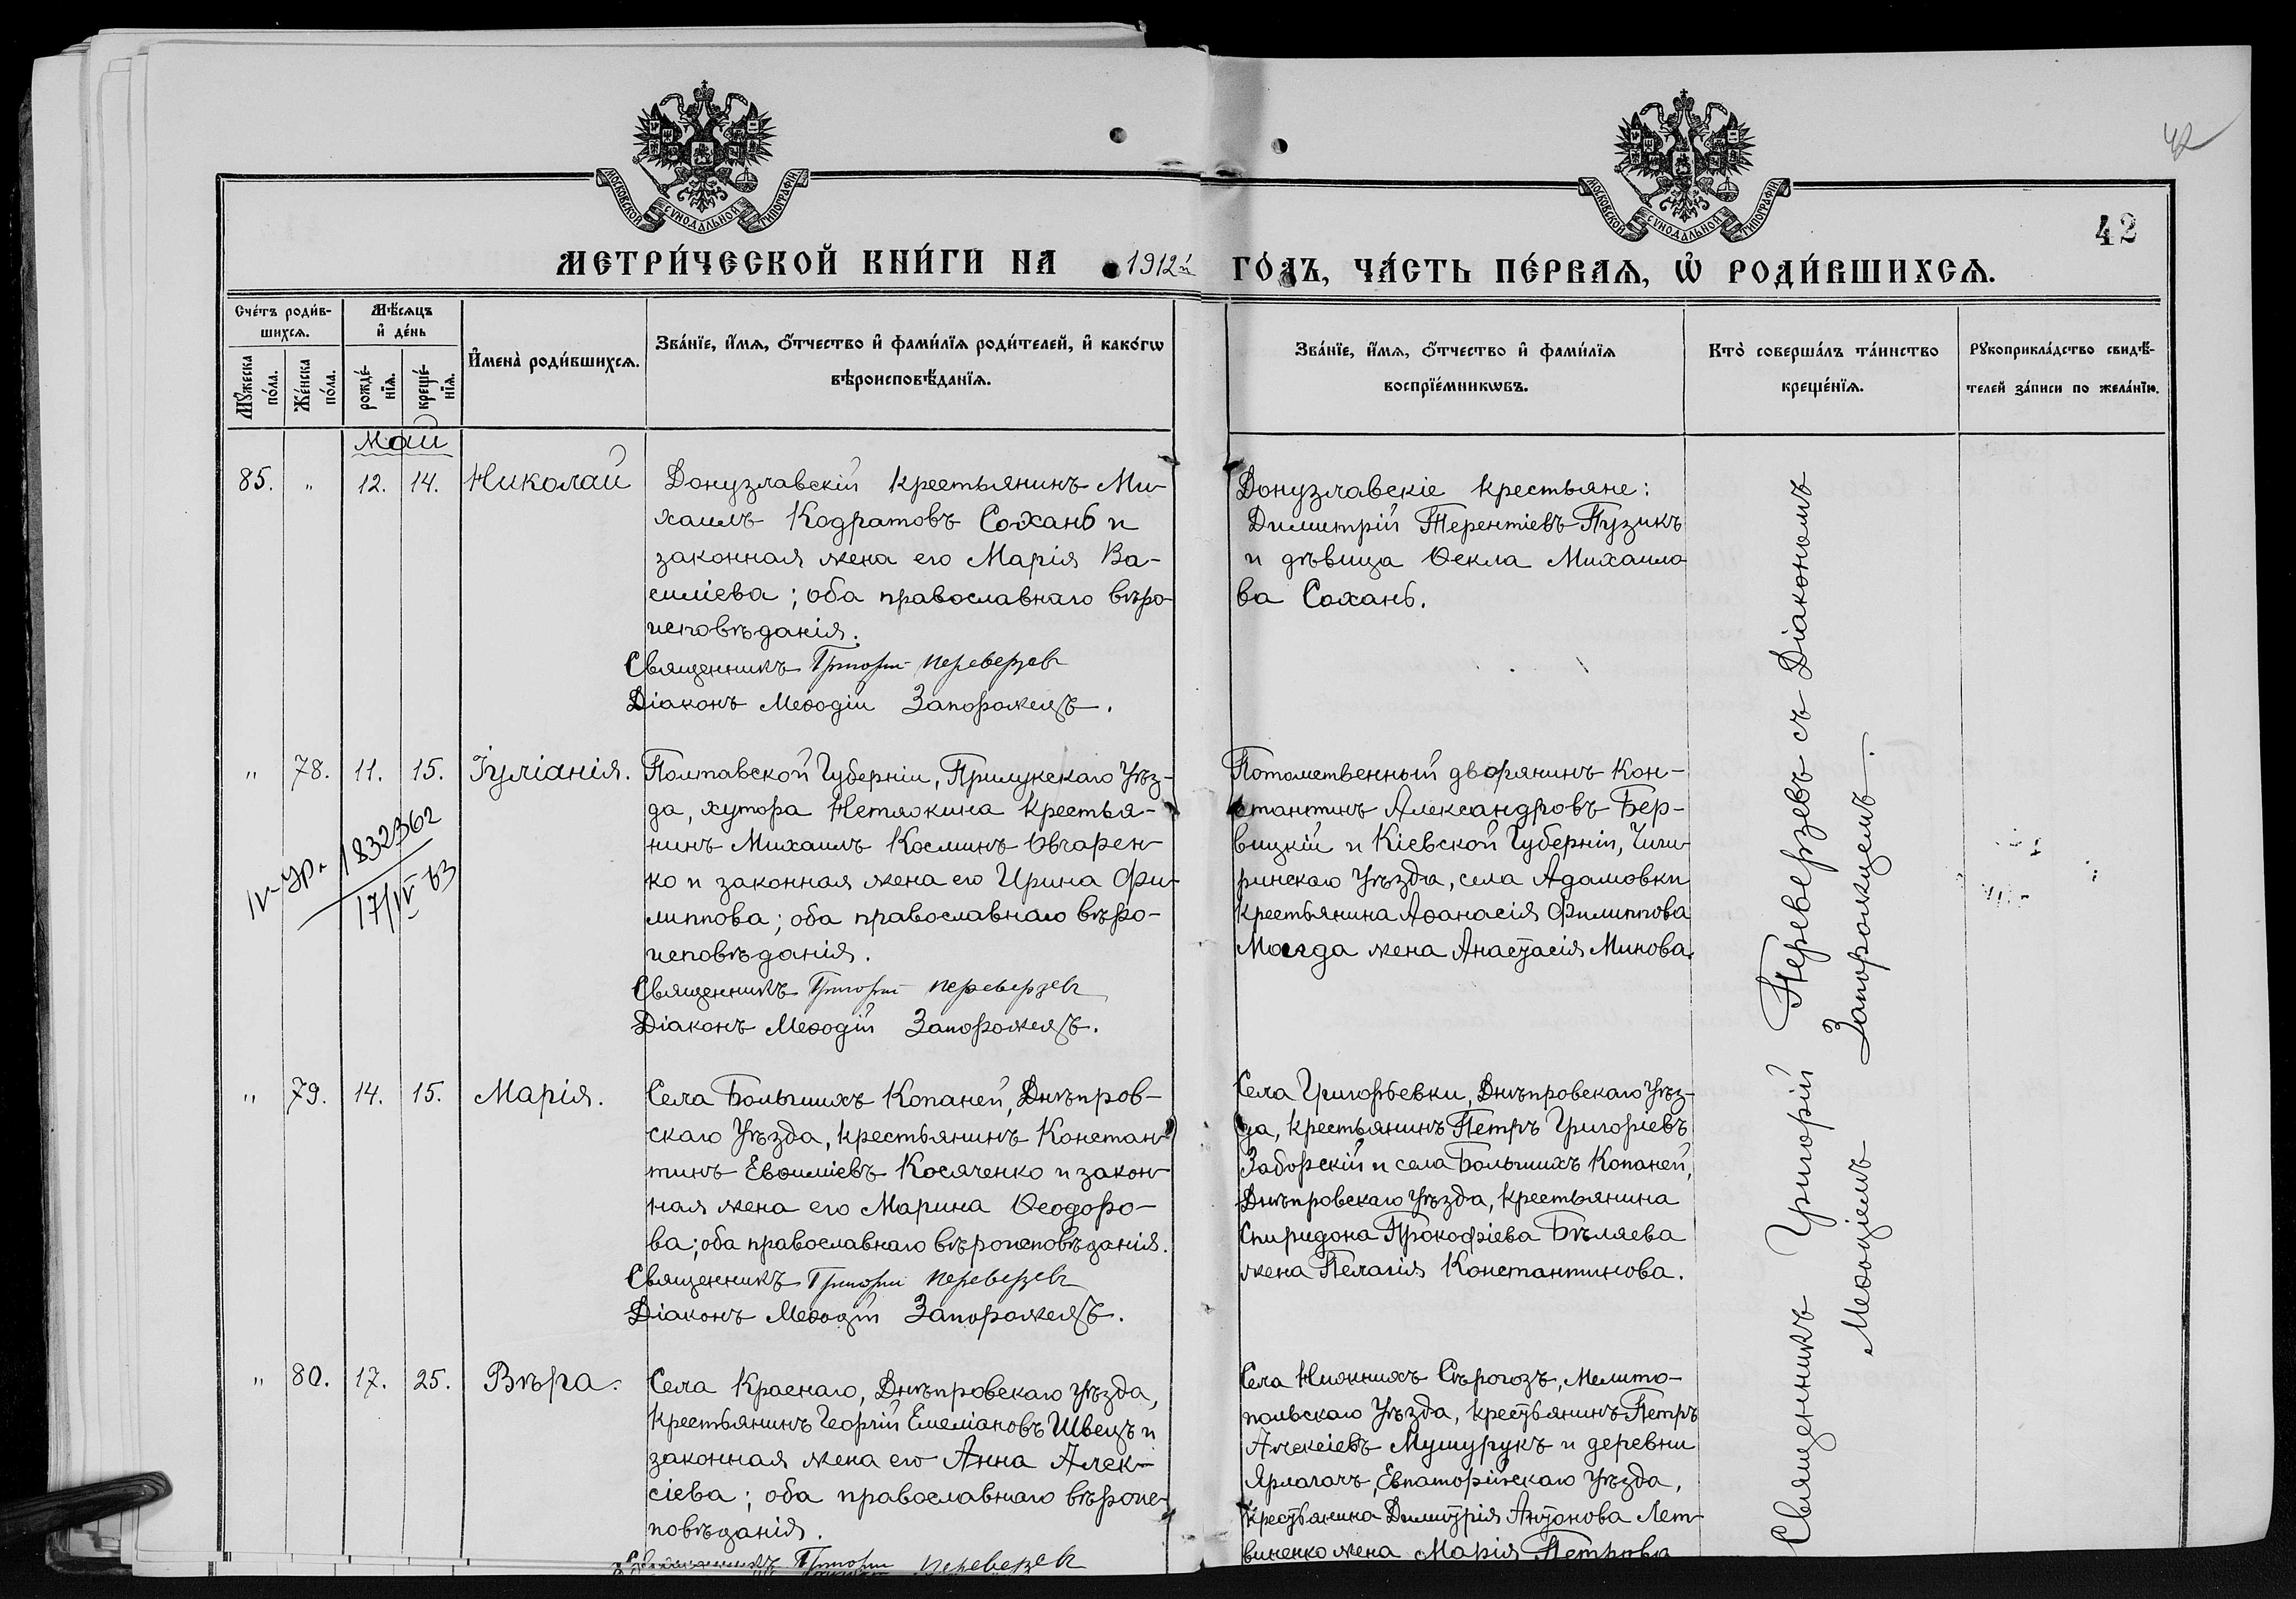 42
МОСКОВСКОЙ СѴНОДАЛЬНОЙ ТИПОГРАФІИ
МОСКОВСКОЙ СѴНОДАЛЬНОЙ ТИПОГРАФІИ
42
МЕТРИ́ЧЕСКОЙ КНИ́ГИ НА 1912й ГО́ДЪ, ЧА́СТЬ ПЕ́РВАѦ, Ѡ҆ РОДИ́ВШИХСѦ.
Сче́тъ роди́в-
шихсѧ.
Мꙋ́жеска по́ла.
Же́нска по́ла.
Мѣ́сѧцъ
и҆ де́нь
рожде́-
нїѧ.
креще́-
нїѧ.
И҆мена̀ роди́вшихсѧ.
Зва́нїе, и҆́мѧ, ѻ҆́тчество и҆ фами́лїѧ роди́телей, и҆ како́гѡ
вѣроисповѣ́данїѧ.
Зва́нїе, и҆́мѧ, ѻ҆́тчество и҆ фами́лїѧ
воспрїе́мникѡвъ.
Кто̀ соверша́лъ та́инство
креще́нїѧ.
Рꙋкоприкла́дство свидѣ́-
телей за́писи по жела́нїю.
Май
85. " 12. 14. Николай
Донузлавскій крестьянинъ Ми-
хаилъ Кодратовъ Сохань и
законная жена его Марія Ва-
силіева; оба православнаго вѣро-
исповѣданія.
Священникъ Григорій Переверзев
Діаконъ Меѳодій Запорожецъ.
Донузлавскіе крестьяне:
Димитрій Терентіевъ Пузикъ
и дѣвица Ѳекла Михаило
ва Сохань.
" 78. 11. 15. Іуліанія.
IV-УР. 1832362
17/IV-83
Полтавской Губерніи, Прилукскаго Уѣз-
да, хутора Нетяжина крестья-
нинъ Михаилъ Косминъ Овчарен-
ко и законная жена его Ирина Фи-
липпова; оба православнаго вѣро-
исповѣданія.
Священникъ Григорій Переверзев
Діаконъ Меѳодій Запорожецъ.
Потомственный дворянинъ Кон-
стантинъ Александровъ Бер-
вицкій и Кіевской Губерніи, Чиги-
ринскаго Уѣзда, села Адамовки
крестьянина Аѳанасія Филиппова
жена Анастасія Минова.
" 79. 14. 15. Марія.
Села Большихъ Копаней, Днѣпров-
скаго Уѣзда, крестьянинъ Констан-
тинъ Евѳиміевъ Косяченко и закон-
ная жена его Марина Ѳеодоро-
ва; оба православнаго вѣроисповѣданія.
Священникъ Григорій Переверзев
Діаконъ Меѳодій Запорожецъ.
Села Григорьевки, Днѣпровскаго Уѣз-
да, крестьянинъ Петръ Григорьевъ
Заборскій и села Большихъ Копаней,
Днѣпровскаго Уѣзда, крестьянина
Спиридона Прокофіева Бѣляева
жена Пелагія Константинова.
" 80. 17. 25. Вѣра.
Села Краснаго, Днѣпровскаго Уѣзда,
крестьянинъ Георгій Емеліановъ Швецъ и
законная жена его Анна Алек-
сіева; оба православнаго вѣроис-
повѣданія.
Священникъ Григорій Переверзев
Села Нижнихъ Сѣрогозъ, Мелито-
польскаго Уѣзда, крестьянинъ Петръ
Алексіевъ Мушурукъ и деревни
Ярлагачъ, Евпаторійскаго Уѣзда,
крестьянина Димитрія Антонова Лит-
виненко жена Марія Петрова
Священникъ Григорій Переверзевъ съ Діакономъ
Меѳодіемъ Запорожцемъ.